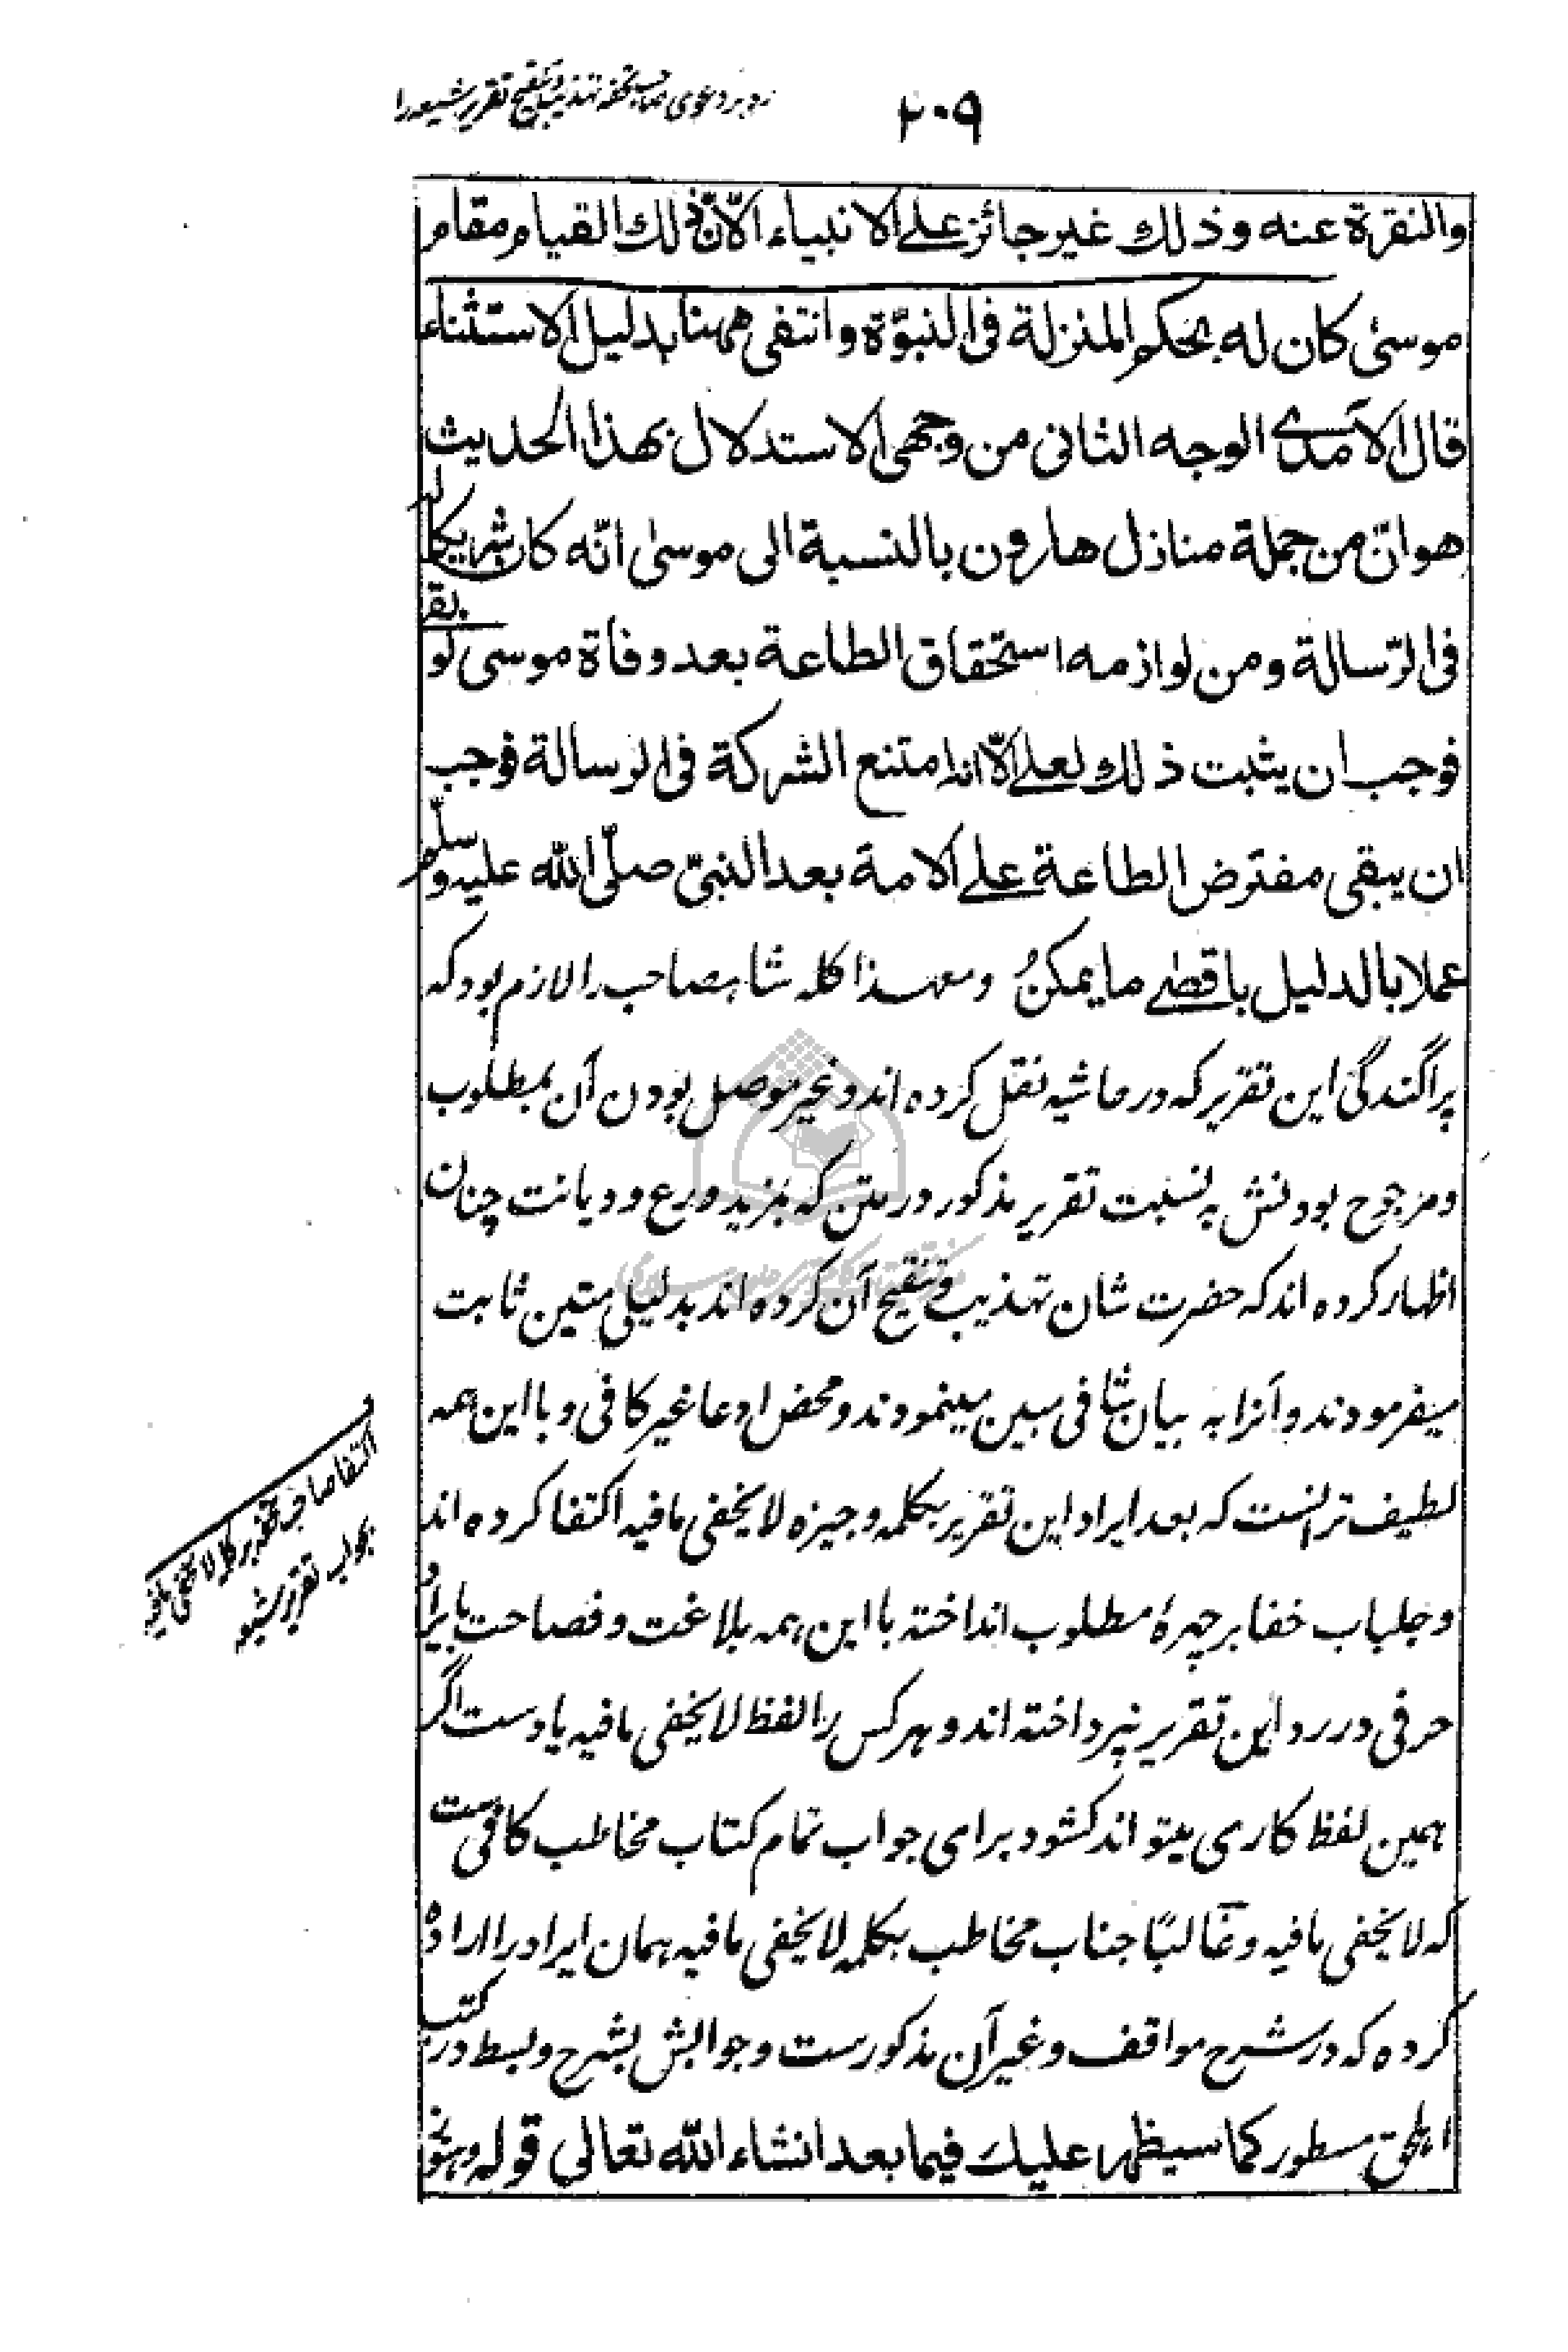 رد بر دعوی صاحب تحفه تهذیب و تنقیح تقریر شیعه را
۲۰۹
والنفرة عنه وذلك غير جائز على الانبياء الّا انّ ذلك القيام مقام
موسىٰ كان له بحكم المنزلة فى النبوّة وانتفى ههنا بدليل الاستثناء
قال الآمدى الوجه الثانى من وجهى الاستدلال بهذا الحديث
هو انّ من جملة منازل هارون بالنسبة الى موسىٰ انّه كان شريكا له
فى الرّسالة ومن لوازمه استحقاق الطاعة بعد وفاة موسى لو بقى
فوجب ان يثبت ذلك لعلى الّا انه امتنع الشركة فى الرسالة فوجب
ان يبقى مفترض الطاعة على الامة بعد النبىّ صلّى الله عليه وسلّم
عملا بالدليل باقصٰے ما يمكنُ ومعهذا كله شاهصاحب را لازم بود كه
پراگندگی این تقریر که در حاشیه نقل کرده اند و غیر موصل بودن آن بمطلوب
و مرجوح بودنش به نسبت تقریر مذکور در متن که بمزید ورع و دیانت چنان
اظهار کرده اند که حضرت شان تهذیب و تنقیح آن کرده اند بدلیلی متین ثابت
میفرمودند و آنرا به بیان شافی مبین مینمودند و محض ادعا غیر کافی و با این همه
لطیف تر انست که بعد ایراد این تقریر بکلمه وجیزه لا یخفی ما فیه اکتفا کرده اند
و جلباب خفا بر چهرهٔ مطلوب انداخته با این همه بلاغت و فصاحت بایراد
حرفی در رد این تقریر نپرداخته اند و هر کس را لفظ لا یخفی ما فیه یادست اگر
همین لفظ کاری میتواند کشود برای جواب تمام کتاب مخاطب کافی ست
که لا یخفی ما فیه و غالبًا جناب مخاطب بکلمه لا یخفی ما فیه همان ایراد را اراده
کرده که در شرح مواقف و غیر آن مذکورست و جوابش بشرح و بسط در کتب
اهل حق مسطور كما سيظهر عليك فيما بعد انشاء الله تعالى قوله
اکتفا صاحب تحفه بر کلمه لا یخفی ما فیه در
جواب تقریر شیعه